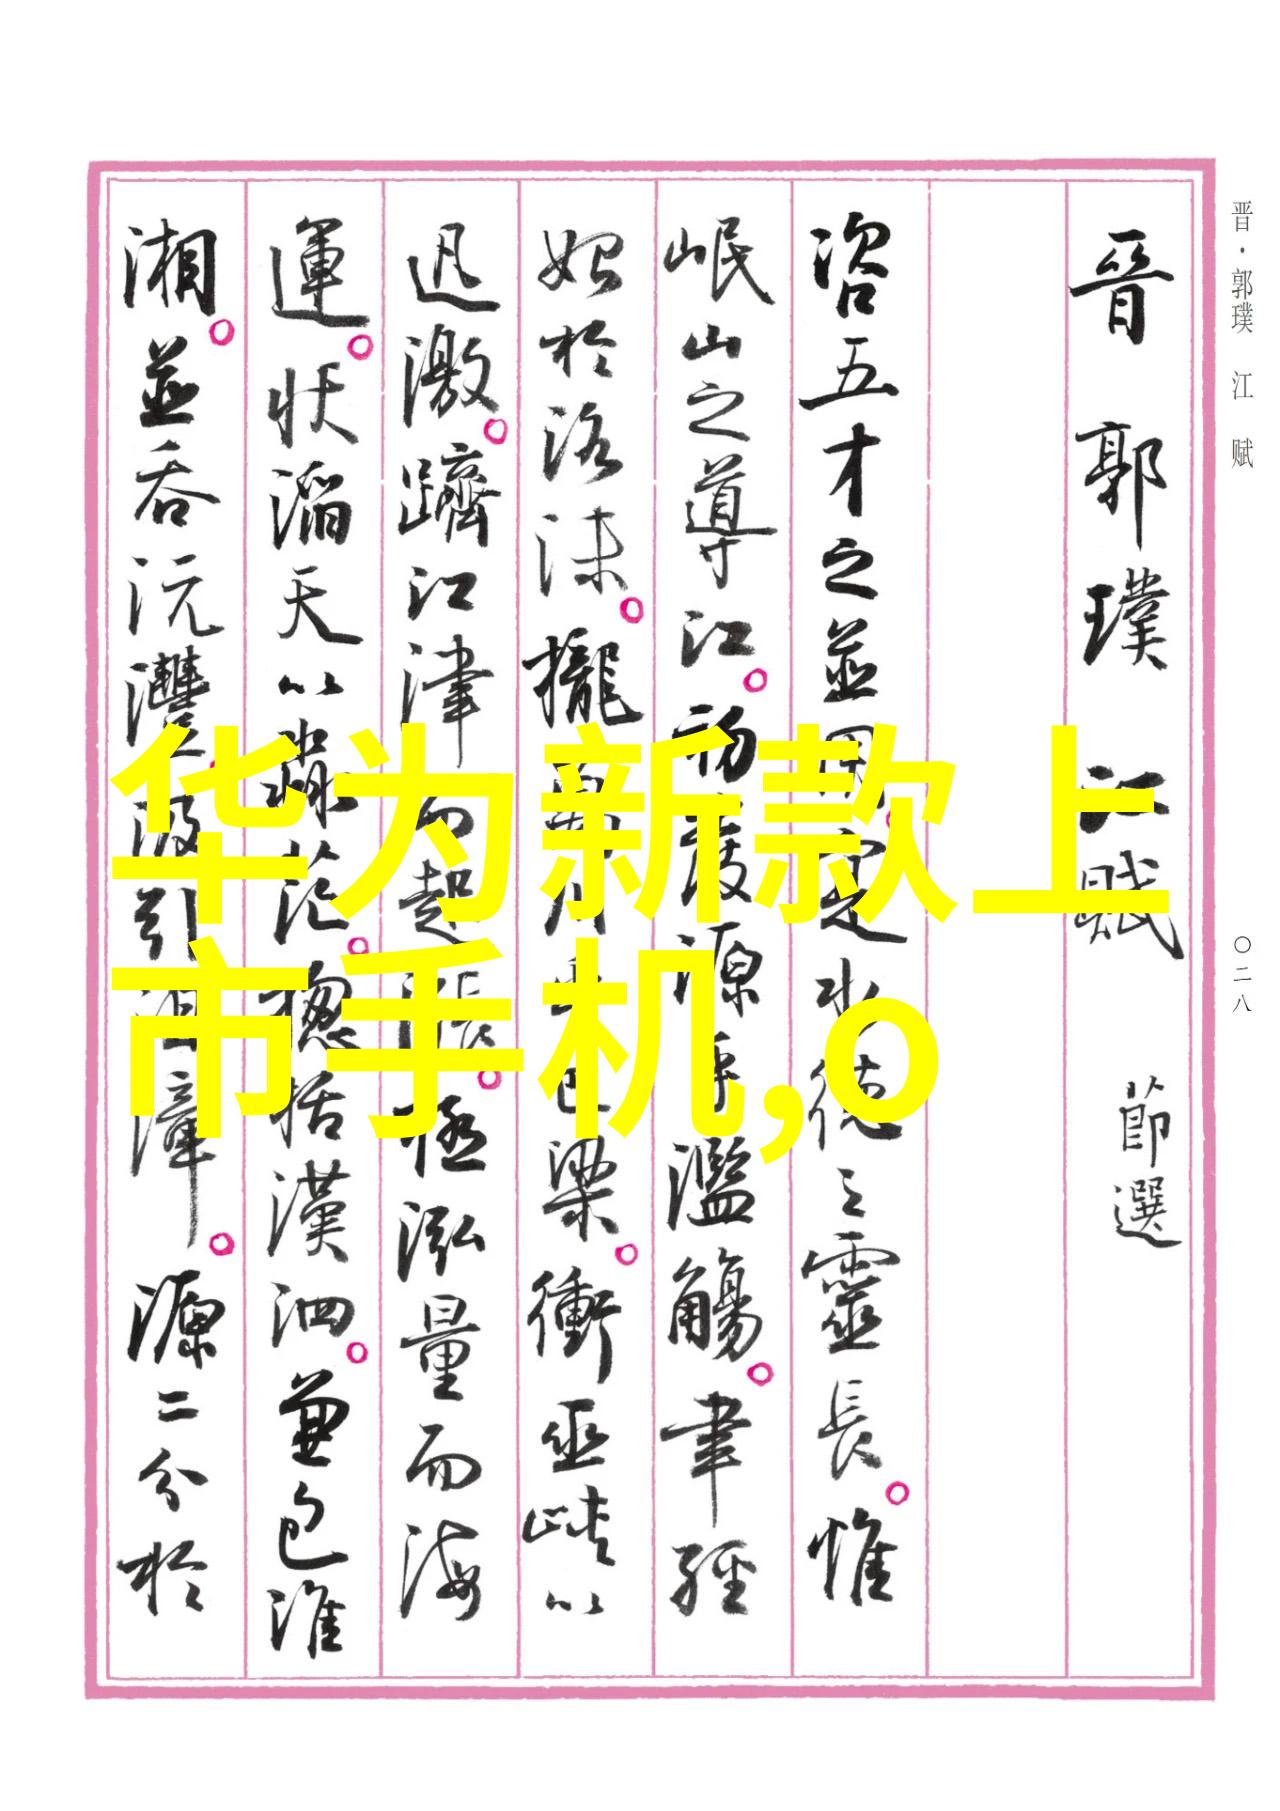 晋·郭璞 江 赋
〇二八
晉 郭 璞 江 賦 節選
咨五才之並用定水德之靈長。惟
岷山之導江。初發源乎濫觴。聿經
始於洛沬。攏萬川乎巴梁。衝巫峽以
迅激。躋江津而起漲。極泓量而海
運。狀滔天以淼茫。揔括漢泗。兼包淮
湘。並吞沅澧。汲引沮漳。源二分於
华为新款上
市手机,o